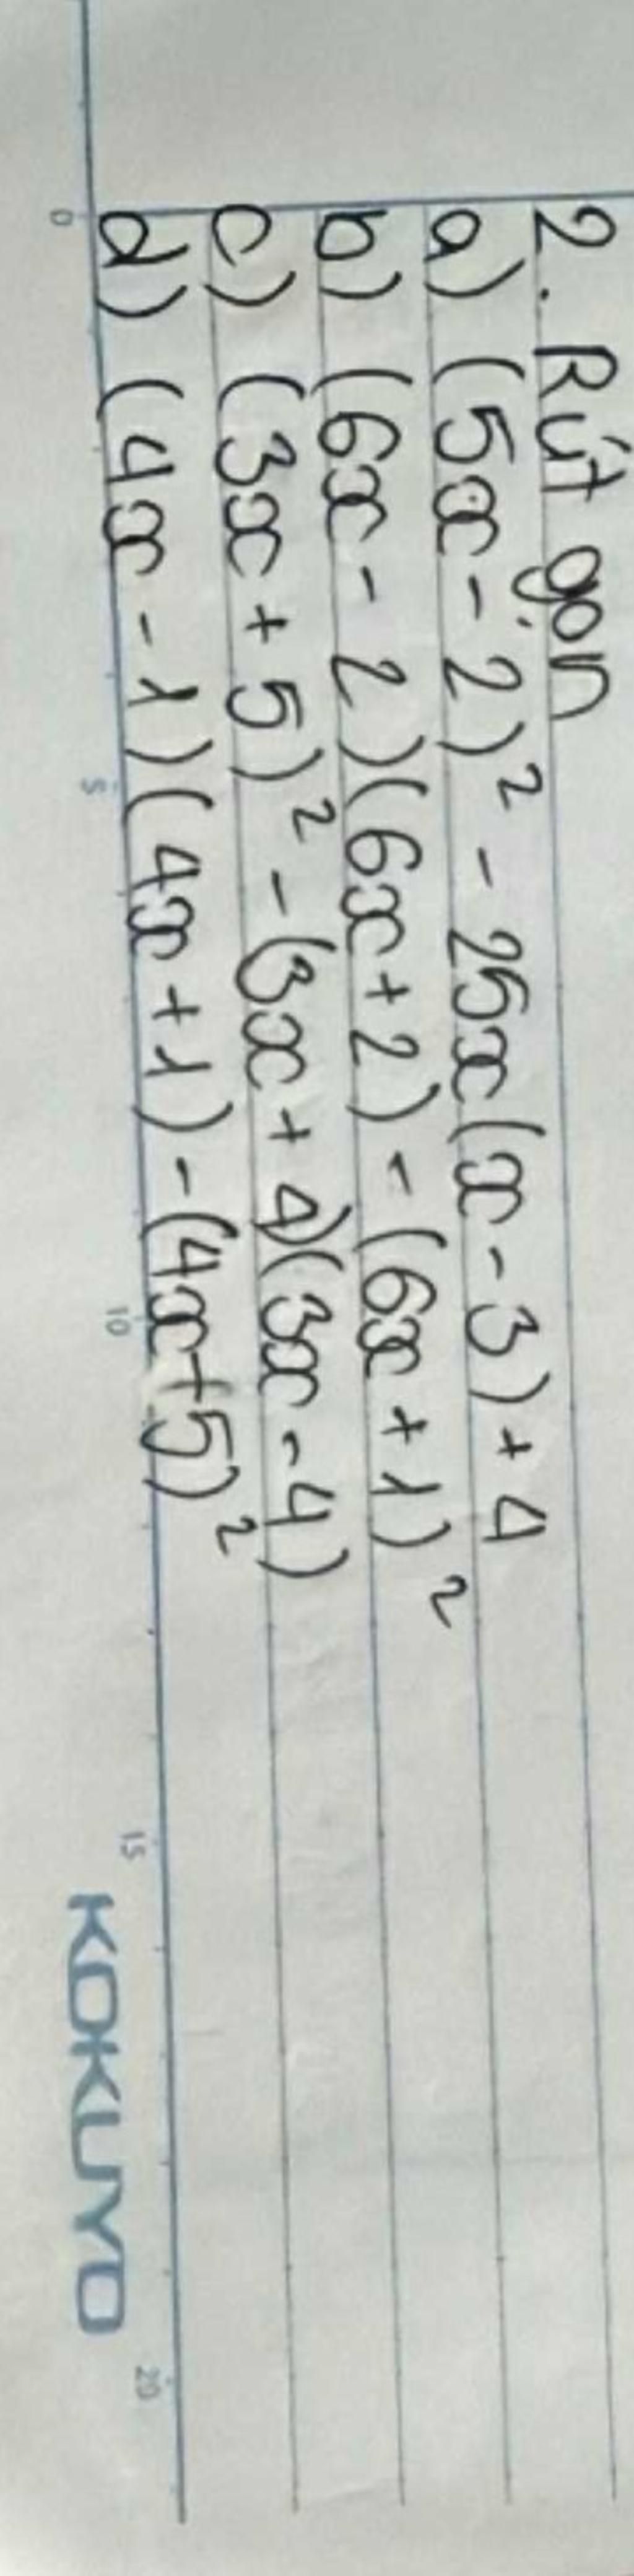 2. Rút gọn
a) (5x - 2)² - 25x(x - 3) + 4
b) (6x - 2)(6x + 2) - (6x + 1)²
c) (3x + 5)² - (3x + 4)(3x - 4)
d) (4x - 1)(4x + 1) - (4x + 5)²
0 5 10 15 20
KOKUYO